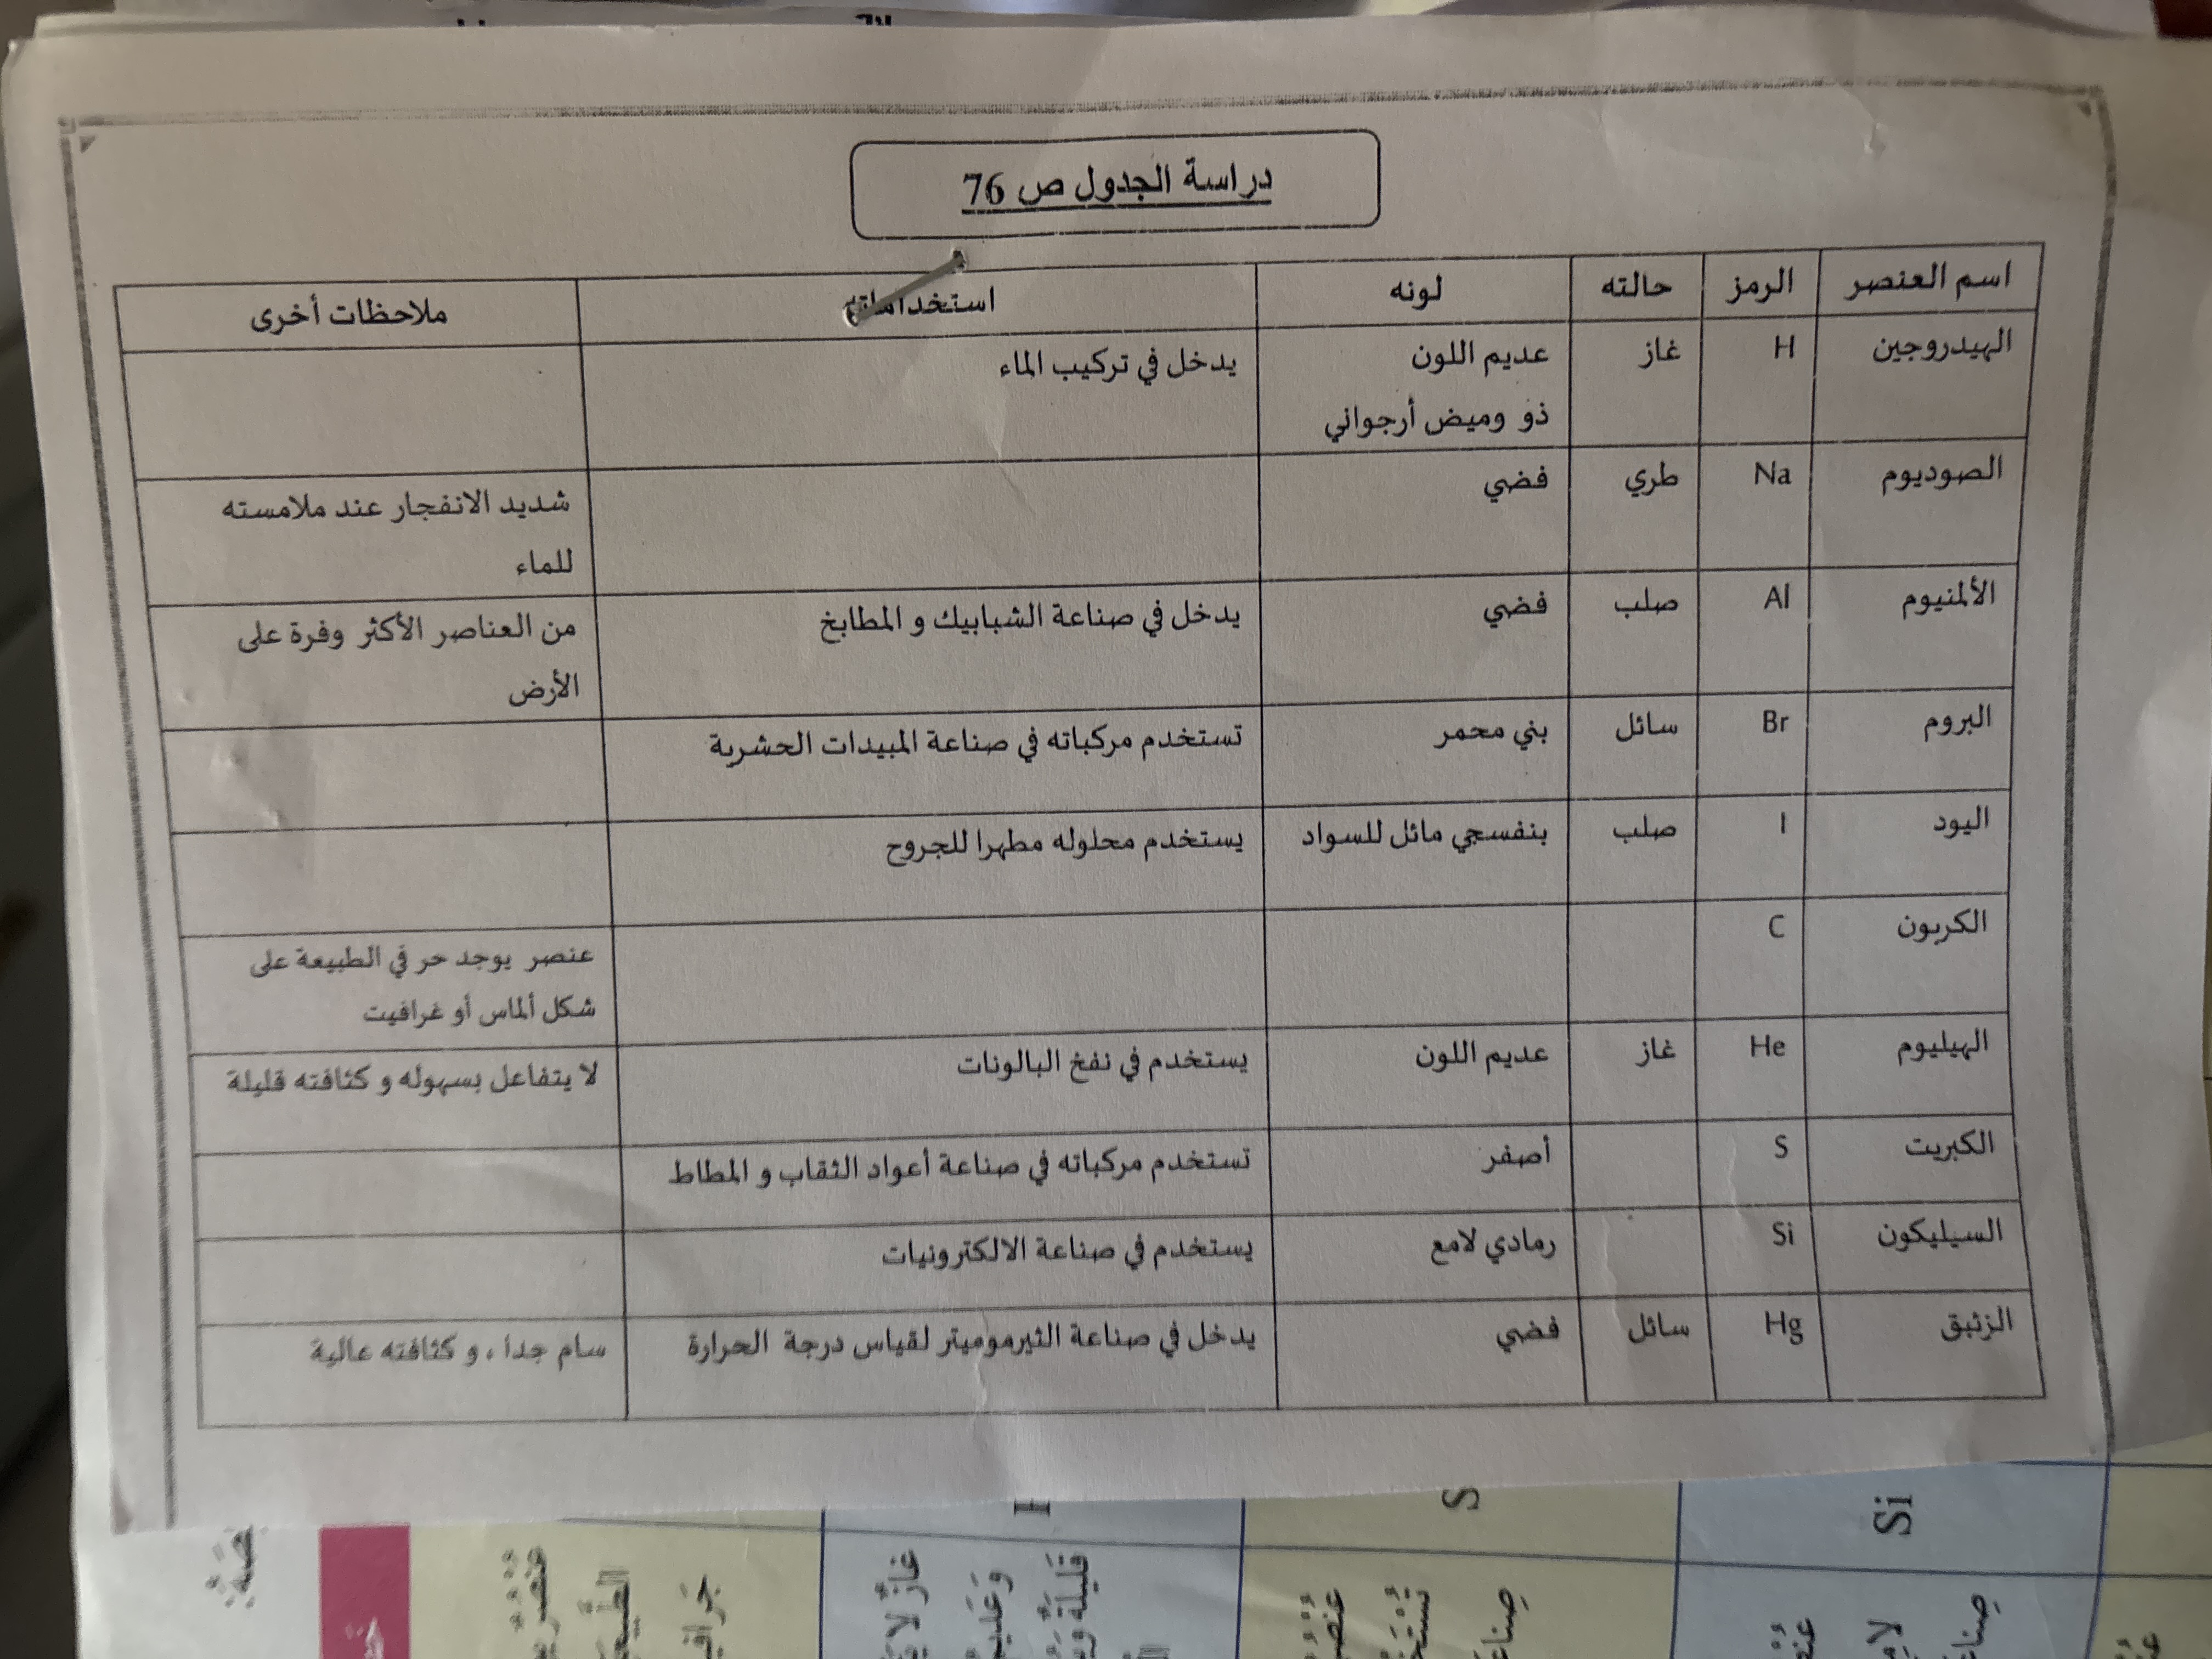 دراسة الجدول ص 76
اسم العنصر الرمز حالته لونه استخداماته ملاحظات أخرى
الهيدروجين H غاز عديم اللون يدخل في تركيب الماء
ذو وميض أرجواني
الصوديوم Na طري فضي شديد الانفجار عند ملامسته
للماء
الألمنيوم Al صلب فضي يدخل في صناعة الشبابيك و المطابخ من العناصر الأكثر وفرة على
الأرض
البروم Br سائل بني محمر تستخدم مركباته في صناعة المبيدات الحشرية
اليود I صلب بنفسجي مائل للسواد يستخدم محلوله مطهرا للجروح
الكربون C عنصر يوجد حر في الطبيعة على
شكل ألماس أو غرافيت
الهيليوم He غاز عديم اللون يستخدم في نفخ البالونات لا يتفاعل بسهوله و كثافته قليلة
الكبريت S أصفر تستخدم مركباته في صناعة أعواد الثقاب و المطاط
السيليكون Si رمادي لامع يستخدم في صناعة الالكترونيات
الزئبق Hg سائل فضي يدخل في صناعة الثيرموميتر لقياس درجة الحرارة سام جدا ، و كثافته عالية
S
Si
غاز لا
قليلة